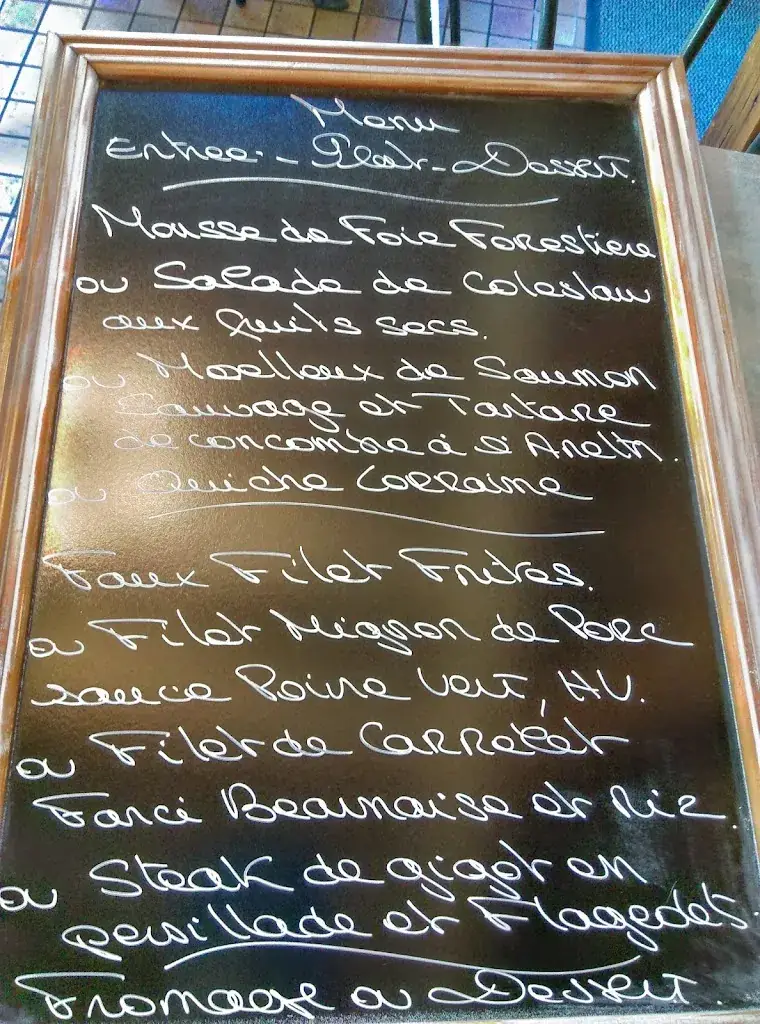 Menu
Entree - Plat - Dessert.
Mousse de Foie Forestiere
ou Salade de Coleslaw
aux fruits secs.
ou Moelleux de Saumon
Sauvage et Tartare
de concombre à l'Aneth.
ou Quiche Lorraine
Faux Filet Frites.
ou Filet Mignon de Porc
sauce Poivre Vert, HV.
ou Filet de Carrelet
Farci Bearnaise et Riz.
ou Steak de gigot en
persillade et Flageolets.
Fromage ou Dessert.